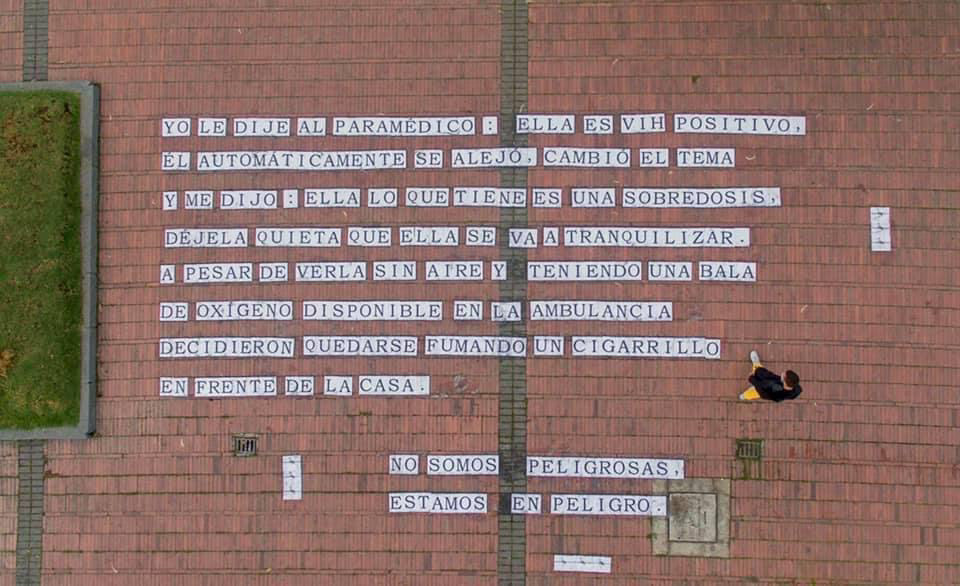 YO LE DIJE AL PARAMÉDICO : ELLA ES VIH POSITIVO,
ÉL AUTOMÁTICAMENTE SE ALEJÓ, CAMBIÓ EL TEMA
Y ME DIJO : ELLA LO QUE TIENE ES UNA SOBREDOSIS,
DÉJELA QUIETA QUE ELLA SE VA A TRANQUILIZAR.
A PESAR DE VERLA SIN AIRE Y TENIENDO UNA BALA
DE OXÍGENO DISPONIBLE EN LA AMBULANCIA
DECIDIERON QUEDARSE FUMANDO UN CIGARRILLO
EN FRENTE DE LA CASA.
NO SOMOS PELIGROSAS,
ESTAMOS EN PELIGRO.